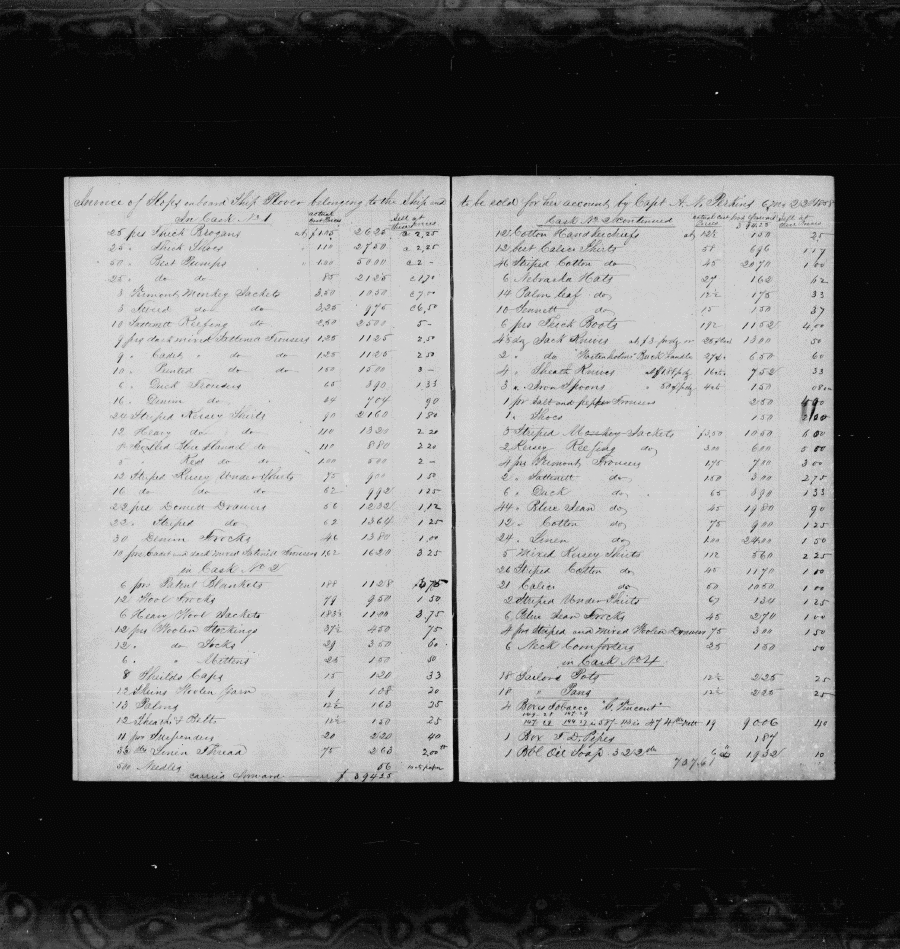 Invoice of Slops on board Ship Plover belonging to the Ship and
In Cask No 1
actual
Cost Prices
Sell at
these Prices
25 prs Thick Brogans at $105 2625 a 2,25
25 " Thick Shoes " 110 2750 a 2,25
50 " Best Pumps " 100 5000 a 2 -
25 " do do 85 2125 c170
3 Piemont Monkey Jackets 3,50 1050 c700
3 do do 3,25 975 c6,50
10 Sattinett Reefing do 250 2500 5 -
9 prs dark mixed Sattinett Trousers 125 1125 250
9 " Cadet " do do 125 1125 250
10 " Printed do do 150 1500 3 -
6 " Duck Trousers 65 390 133
16 " Denim do 44 704 90
24 Striped Kersey Shirts 90 2160 180
12 Heavy do do 110 1320 220
8 Twilled Blue Flannel do 110 880 220
5 " Red do do 100 500 2 -
12 Striped Kersey Under Shirts 75 900 150
16 do do do 62 992 125
22 prs Domett Drawers 56 1232 1,12
22 " Striped do 62 1364 125
30 Denim Frocks 46 1380 1,00
10 prs Cadet and dark mixed Satinet Trousers 162 1620 325
in Cask No 2
6 prs Patent Blankets 188 1128 375
12 Wool Frocks 79 950 150
6 Heavy Wool Jackets 183⅓ 1100 3,75
12 prs Woolen Stockings 37½ 450 75
12 " do Socks 29 350 60
6 " " Mittens 25 150 50
8 Shields Caps 15 120 33
12 Skeins Woolen Yarn 9 108 20
13 Palms 12½ 163 25
12 Sheath & Belts 12½ 150 25
11 prs Suspenders 20 220 40
Linen Thread 75 263 200
500 Needles 56
carried forward $ 39435
to be sold for her account by Capt A. N. Perkins
Cask No 2 continued
12 Cotton Handkerchiefs at 12½ 150 25
12 best Calico Shirts 58 696 117
46 Striped Cotton do 45 2070 100
6 Nebraska Hats 27 162 62
14 Palm leaf do 12½ 175 33
10 Sennett do 15 150 37
6 prs Thick Boots 192 1152 4,00
dz Jack Knives 1300 50
2 " do "Wostenholm" Buck handle 27 650 60
4 " Sheath Knives 752 33
3 " Iron Spoons 150 08
1 pr Salt and pepper Trousers 250
1 " Shoes 150
3 Striped Monkey Jackets $3,50 1050 600
2 Kersey Reefing do 300 600 500
4 prs Piemont Trousers 175 700 300
2 " Sattinett do 150 300 275
6 " Duck do 65 390 133
44 " Blue Jean do 45 1980 90
12 " Cotton do 75 900 125
24 " Linen do 100 2400 150
5 Mixed Kersey Shirts 112 560 225
26 Striped Cotton do 45 1170 100
21 Calico do 50 1050 100
2 Striped Under Shirts 67 134 125
6 Blue Jean Frocks 45 270 100
4 prs Striped and mixed Woolen Drawers 75 300 150
6 Neck Comforters 25 150 50
in Cask No 4
18 Sailors Pots 12½ 225 25
18 " Pans 12½ 225 25
4 Boxes Tobacco "C. Vincent"
19 9006 40
1 Box T. D. Pipes 187
1 Bbl Oil Soap 322 lbs 6 1932 10